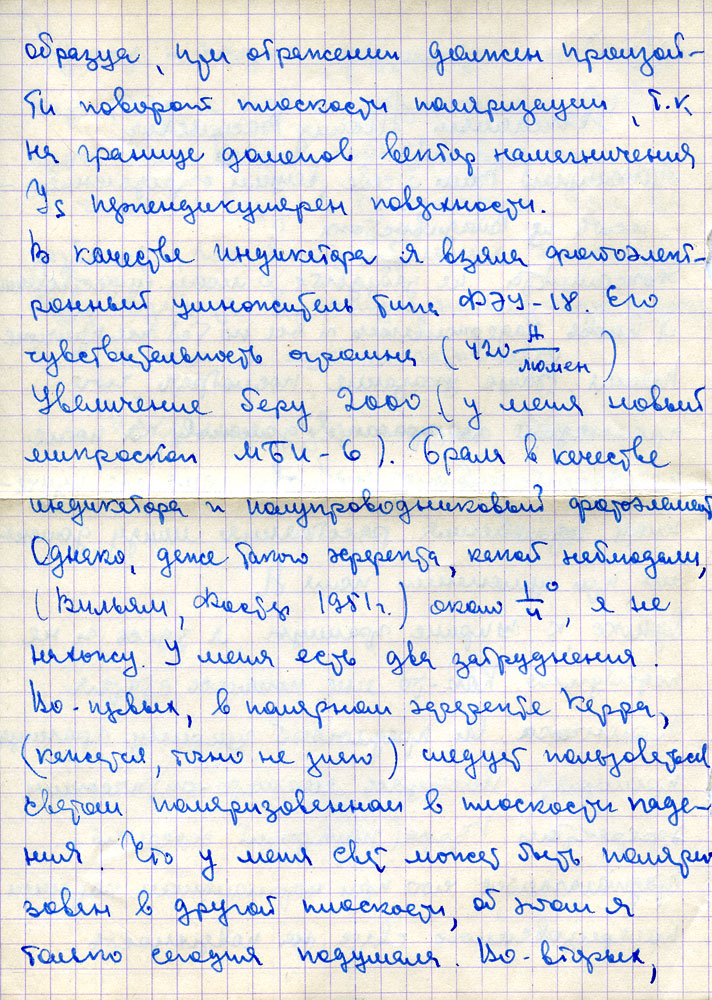 образца, при отражении должен произой-
ти поворот плоскости поляризации, т.к
на границе доменов вектор намагничения
Js перпендикулярен поверхности.
В качестве индикатора я взяла фотоэлект-
ронный умножитель типа ФЭУ-18. Его
чувствительность огромна (420 А/люмен)
Увеличение беру 2000 (у меня новый
микроскоп МБИ-6). Брала в качестве
индикатора и полупроводниковый фотоэлемент
Однако, даже такого эффекта, какой наблюдали,
(Вильям, Фостер 1951г.) около 1/4°, я не
нахожу. У меня есть два затруднения.
Во-первых, в полярном эффекте Керра,
(кажется, точно не знаю) следует пользоваться
светом поляризованном в плоскости паде-
ния. Что у меня свет может быть поляри
зован в другой плоскости, об этом я
только сегодня подумала. Во-вторых,